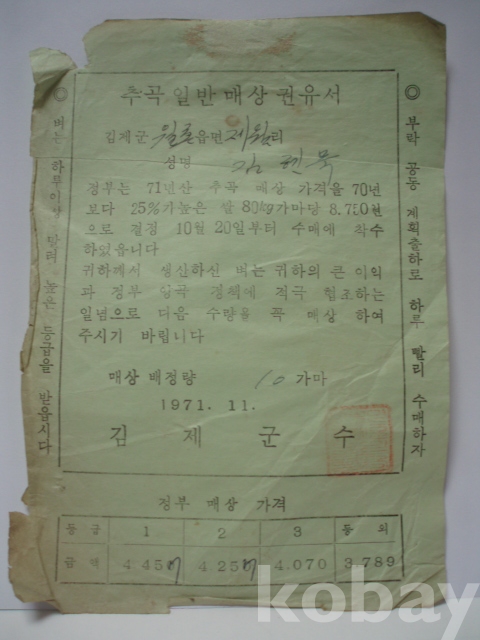 추곡일반매상권유서
김제군 월촌읍면 제월리
성명 김 현 묵
정부는 71년산 추곡 매상 가격을 70년
보다 25%가높은 쌀 80kg가마당 8.750원
으로 결정 10월 20일부터 수매에 착수
하였읍니다
귀하께서 생산하신 벼는 귀하의 큰 이익
과 정부 양곡 정책에 적극 협조하는
일념으로 다음 수량을 꼭 매상 하여
주시기 바랍니다
매상 배정량 10 가마
1971. 11.
김 제 군 수
◎ 벼는 하루이상 말려 높은 등급을 받읍시다
◎ 부락 공동 계획출하로 하루 빨리 수매하자
정부 매상 가격
등급 1 2 3 등외
금액 4.457 4.257 4.070 3.789
kobay